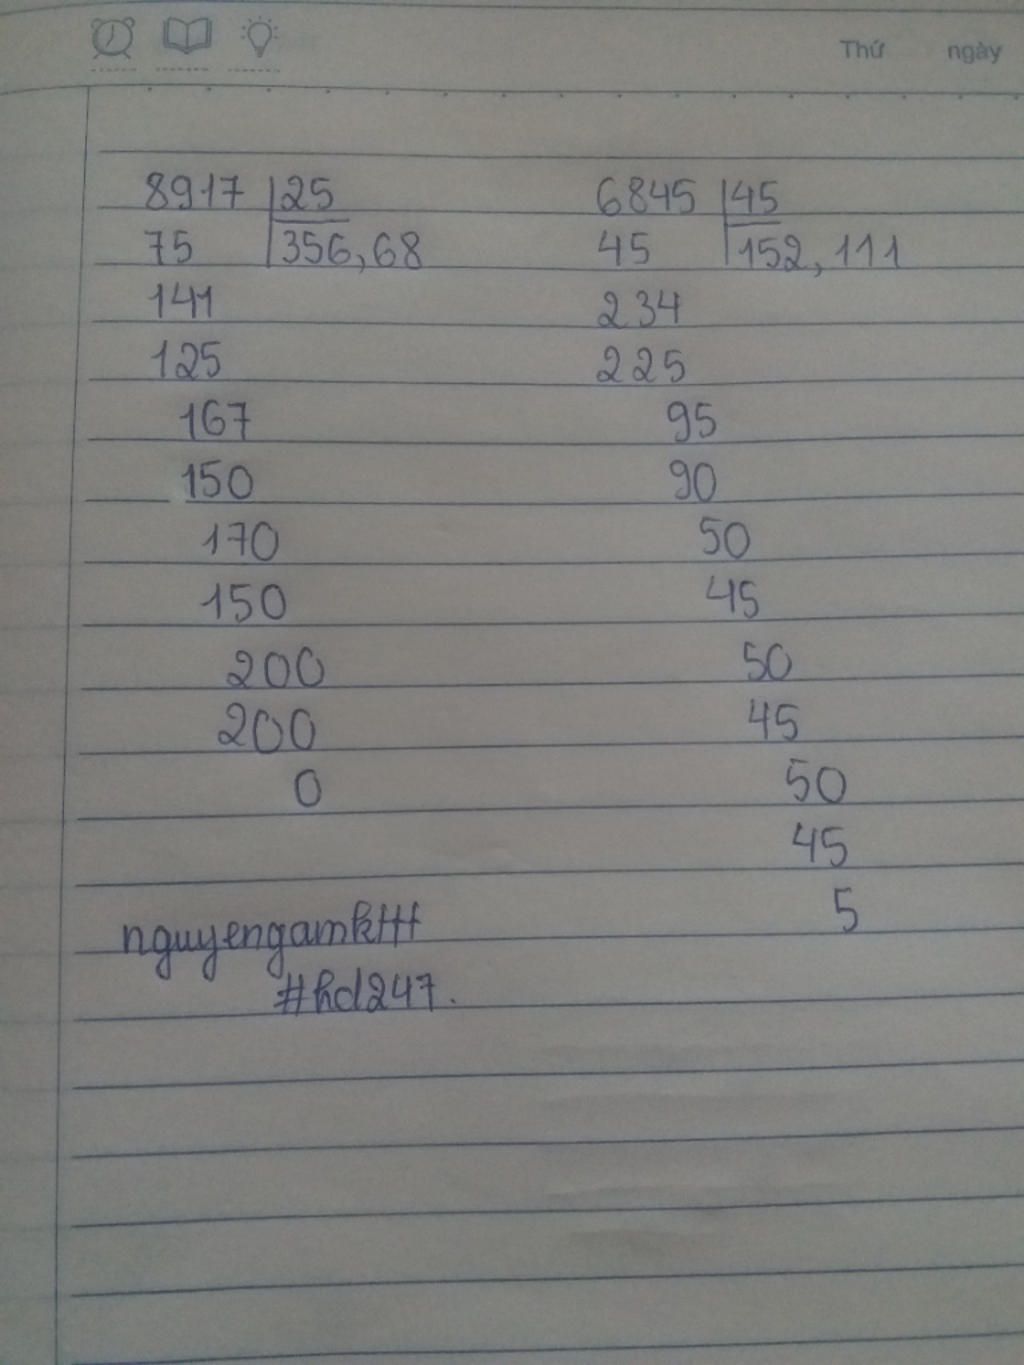 Thứ ngày
8917 25
75 356,68
141
125
167
150
170
150
200
200
0
6845 45
45 152,111
234
225
95
90
50
45
50
45
50
45
5
nguyengamkHH
#hd247.